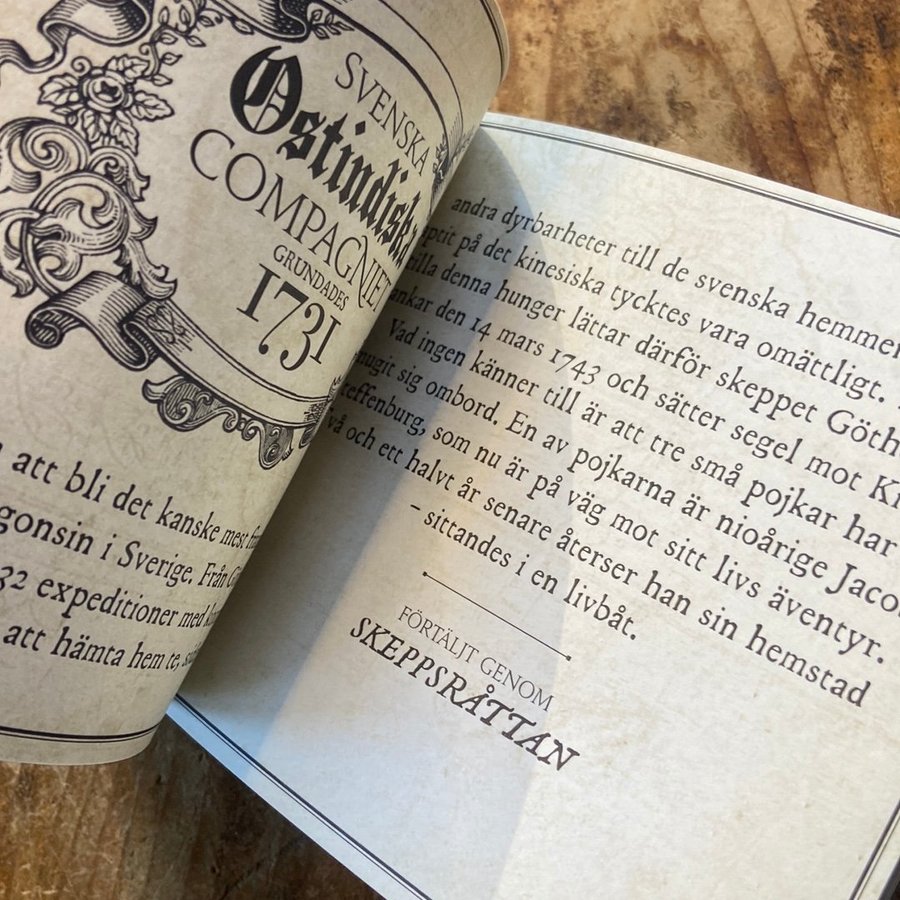 SVENSKA
Ostindiska
COMPAGNIET
GRUNDADES
1731
att bli det kanske mest
i Sverige. Från
32 expeditioner med
att hämta hem te,
andra dyrbarheter till de svenska
på det kinesiska tycktes vara omättligt.
denna hunger lättar därför skeppet
ankar den 14 mars 1743 och sätter segel mot
Vad ingen känner till är att tre små pojkar har
sig ombord. En av pojkarna är nioårige
som nu är på väg mot sitt livs äventyr.
och ett halvt år senare återser han sin hemstad
– sittandes i en livbåt.
FÖRTÄLJT GENOM
SKEPPSRÅTTAN